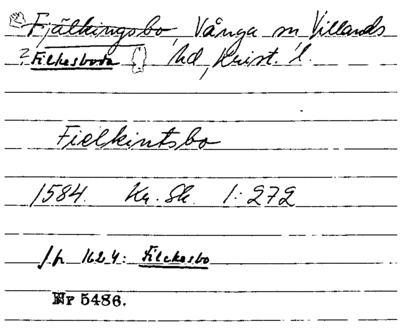 Fjälkingsbo, Vånga sn Villands
? Filkesboda hd, Krist. l.
Fielkintsbo
1584. Kr. Sk. 1:272
Jb 1624: Filckesbo
Nr 5486.